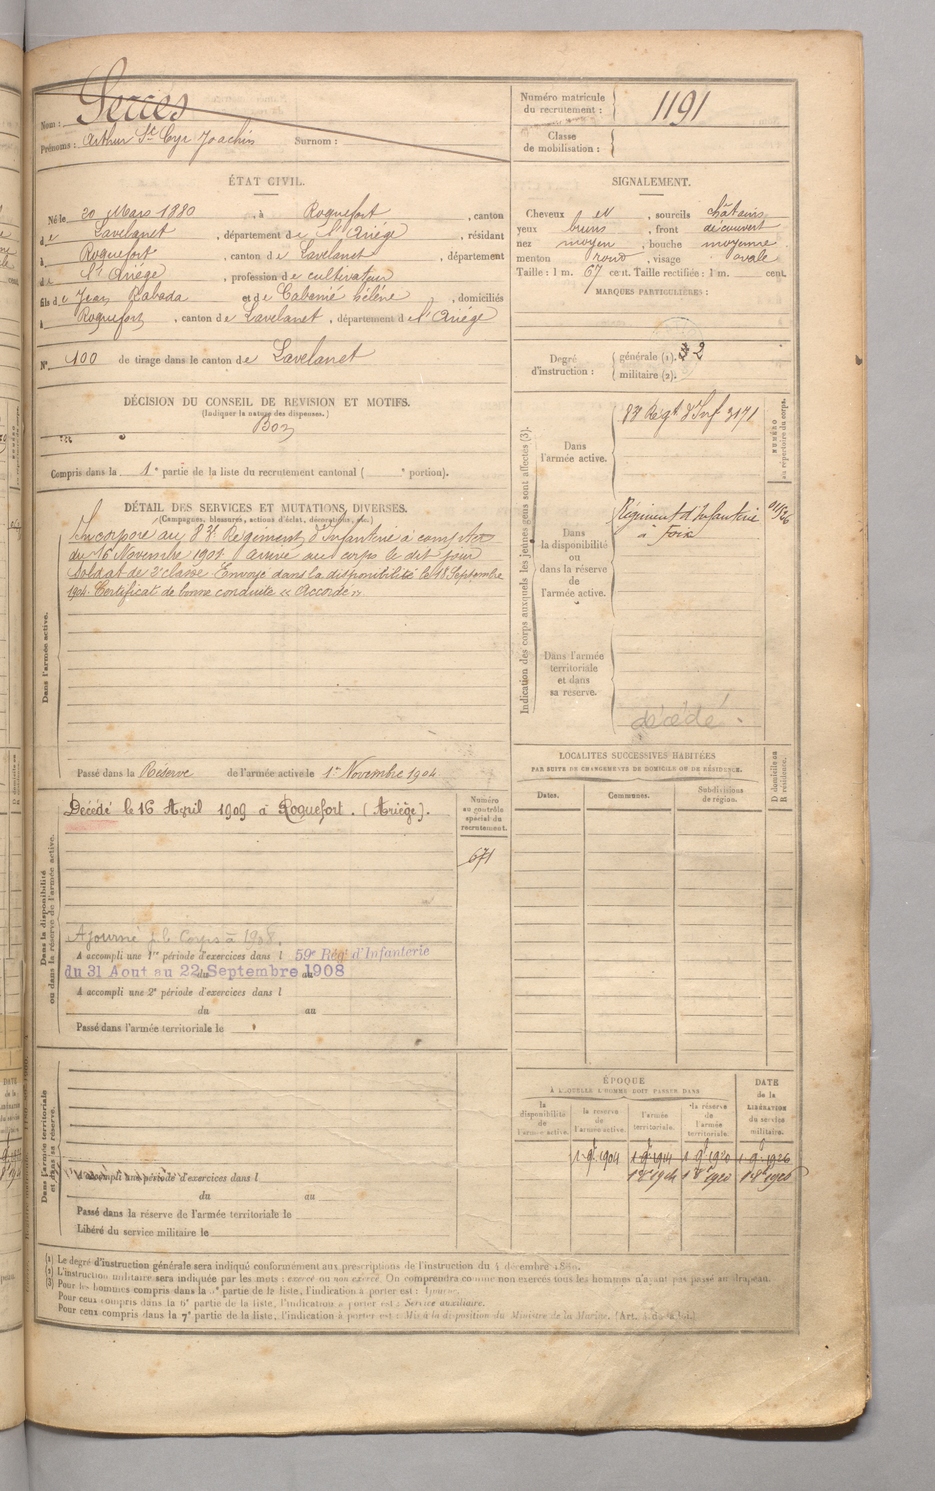 Nom :
Prénoms : Arthur St Cyr Joachin Surnom :
Numéro matricule
du recrutement : 1191
Classe
de mobilisation :
ÉTAT CIVIL.
Né le 20 Mars 1880, à Roquefort, canton
de Lavelanet, département de l'Ariége, résidant
à Roquefort, canton de Lavelanet, département
de l'Ariége, profession de cultivateur
fils de Jean Rabada et de Cabanié hélène, domiciliés
à Roquefort, canton de Lavelanet, département de l'Ariége
N° 100 de tirage dans le canton de Lavelanet
SIGNALEMENT.
Cheveux et, sourcils châtains
yeux bruns, front découvert
nez moyen, bouche moyenne
menton rond, visage ovale
Taille : 1 m. 67 cent. Taille rectifiée : 1 m. cent.
MARQUES PARTICULIÈRES :
Degré
d'instruction :
générale (1). 2
militaire (2).
DÉCISION DU CONSEIL DE REVISION ET MOTIFS.
(Indiquer la nature des dispenses.)
Bon
Compris dans la 1e partie de la liste du recrutement cantonal ( e portion).
DÉTAIL DES SERVICES ET MUTATIONS DIVERSES.
(Campagnes, blessures, actions d'éclat, décorations, etc.)
Dans l'armée active.
Incorporé au 83e Régiment d'Infanterie à compter
du 16 Novembre 1901 arrivé au corps le dit jour
Soldat de 2e classe Envoyé dans la disponibilité le 18 Septembre
1904. Certificat de bonne conduite « Accordé ».
Passé dans la Réserve de l'armée active le 1er Novembre 1904
Indication des corps auxquels les jeunes gens sont affectés (3).
Dans
l'armée active.
83e Régt d'Inf 3171
NUMÉRO
au répertoire du corps.
Dans
la disponibilité
ou
dans la réserve
de
l'armée active.
Régiment d'Infanterie
à Foix
Dans l'armée
territoriale
et dans
sa réserve.
décédé
Dans la disponibilité
ou dans la réserve de l'armée active.
Décédé le 16 Avril 1909 à Roquefort. (Ariège).
Numéro
au contrôle
spécial du
recrutement.
671
Ajourné p. le Corps à 1908.
A accompli une 1re période d'exercices dans l 59e Rég. d'Infanterie
du 31 Aout au 22 Septembre 1908
du au
A accompli une 2e période d'exercices dans l
du au
Passé dans l'armée territoriale le
LOCALITÉS SUCCESSIVES HABITÉES
PAR SUITE DE CHANGEMENTS DE DOMICILE OU DE RÉSIDENCE.
Dates.
Communes.
Subdivisions
de région.
D domicile ou
R résidence.
Dans l'armée territoriale
et dans sa réserve.
A accompli une période d'exercices dans l
du au
Passé dans la réserve de l'armée territoriale le
Libéré du service militaire le
ÉPOQUE
À LAQUELLE L'HOMME DOIT PASSER DANS
la
disponibilité
de
l'armée active.
la réserve
de
l'armée active.
l'armée
territoriale.
la réserve
de
l'armée
territoriale.
DATE
de la
LIBÉRATION
du service
militaire.
(1) Le degré d'instruction générale sera indiqué conformément aux prescriptions de l'instruction du 4 décembre 1889.
(2) L'instruction militaire sera indiquée par les mots : exercé ou non exercé. On comprendra comme non exercés tous les hommes n'ayant pas passé au drapeau.
(3) Pour les hommes compris dans la 5e partie de la liste, l'indication à porter est : Ajourné.
Pour ceux compris dans la 6e partie de la liste, l'indication à porter est : Service auxiliaire.
Pour ceux compris dans la 7e partie de la liste, l'indication à porter est : Mis à la disposition du Ministre de la Marine. (Art. 4 de la loi.)